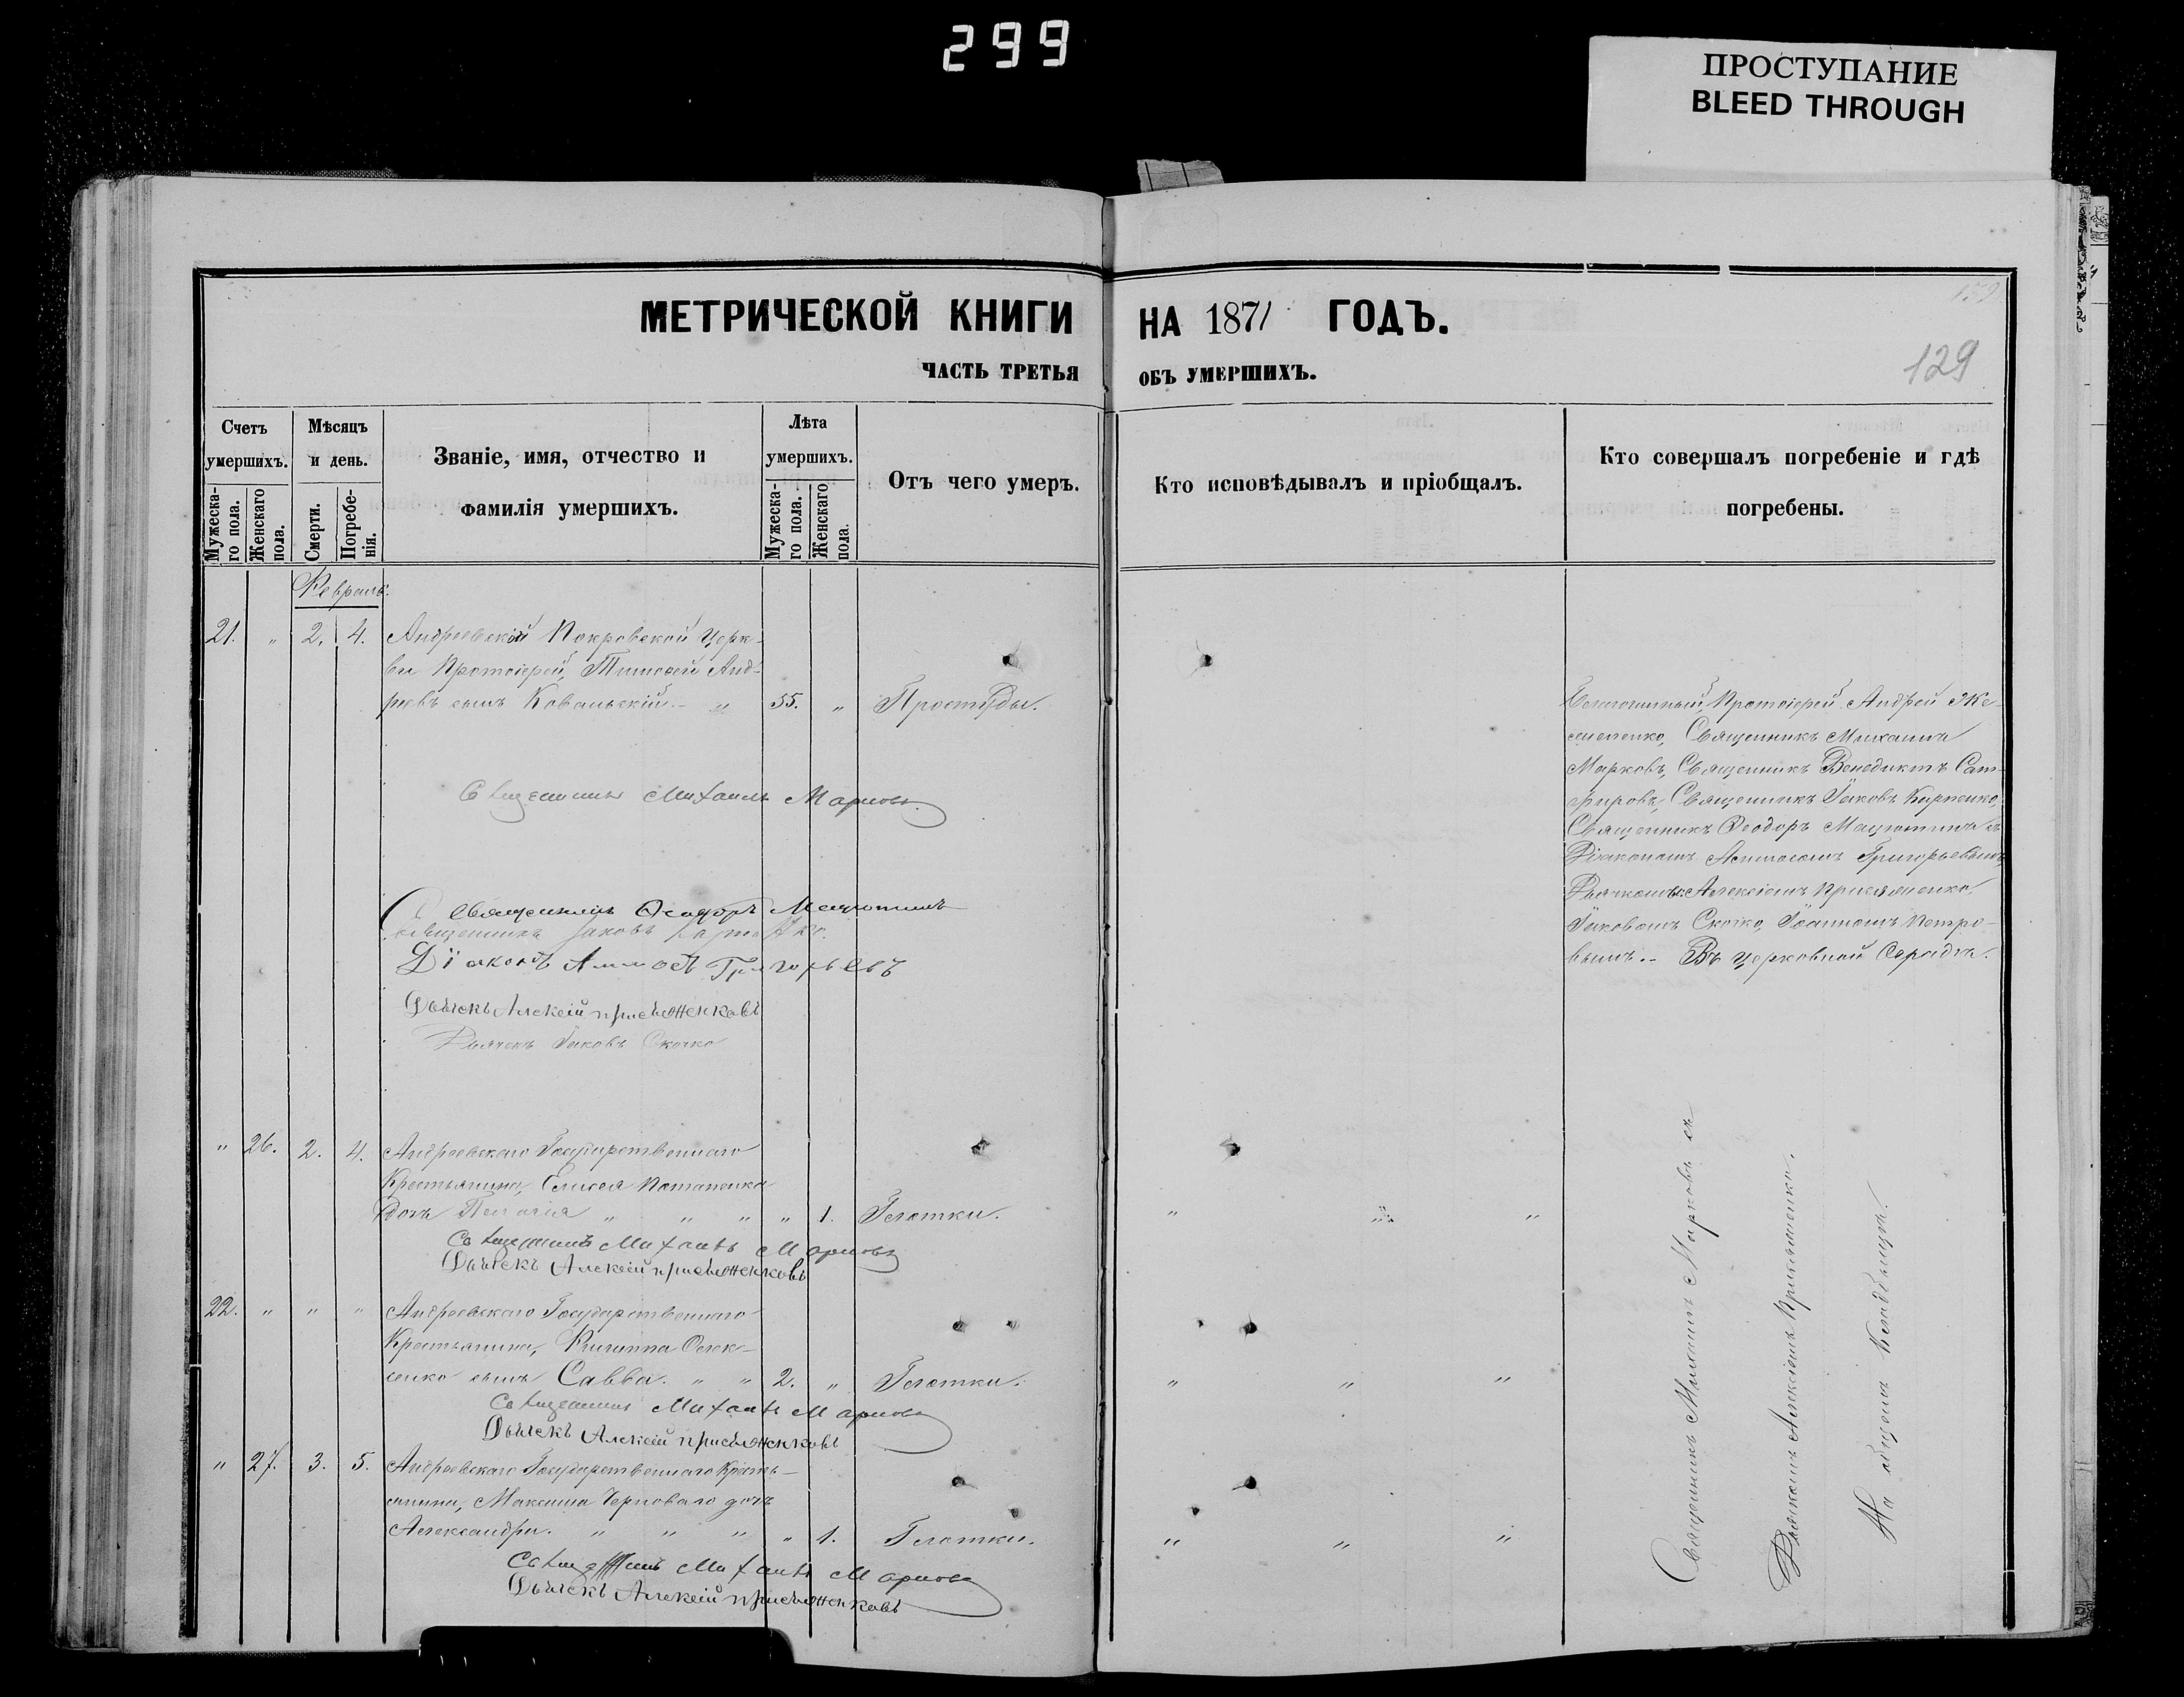 299
ПРОСТУПАНИЕ
BLEED THROUGH
МЕТРИЧЕСКОЙ КНИГИ НА 1871 ГОДЪ.
ЧАСТЬ ТРЕТЬЯ ОБЪ УМЕРШИХЪ.
129
Счетъ умершихъ.
Мужеска-го пола.
Женскаго пола.
Мѣсяцъ и день.
Смерти.
Погребе-нія.
Званіе, имя, отчество и фамилія умершихъ.
Лѣта умершихъ.
Мужеска-го пола.
Женскаго пола.
Отъ чего умеръ.
Кто исповѣдывалъ и пріобщалъ.
Кто совершалъ погребеніе и гдѣ погребены.
Февраль.
21. " 2. 4. Андреевской Покровской Церк-
ви Протоіерей, Тимофей Анд-
реевъ сынъ Ковальскій.- " 55. " Простуды.
Благочинный, Протоіерей Андрей
Священникъ Михаилъ
Марковъ, Священникъ Венедиктъ Сат-
фировъ, Священникъ Іаковъ Карпенко,
Священникъ Феодоръ Мацютинъ съ
Діакономъ Аммосомъ Григорьевымъ
Дьячкомъ: Алексіемъ Присяженко,
Іаковомъ Скочко, Іоанномъ Петро-
вымъ.- Въ церковной Оградѣ.
Священникъ Михаилъ Марковъ
Священникъ Феодоръ Мацютинъ
Священникъ Іаковъ
Діаконъ Аммосъ Григорьевъ
Дьячекъ Алексій присяженковъ
Дьячекъ Іаковъ Скочко
" 26. 2. 4. Андреевскаго Государственнаго
Крестьянина, Елисея Потапенка
дочь Пелагія " " " " 1. Глотки. " " "
Священникъ Михаилъ Марковъ
Дьячекъ Алексій присяженковъ
22. " " " Андреевскаго Государственнаго
Крестьянина, Филиппа Олек-
сенко сынъ Савва. " " 2. " Глотки. " " "
Священникъ Михаилъ Марковъ
Дьячекъ Алексій присяженковъ
" 27. 3. 5. Андреевскаго Государственнаго Кресть-
янина, Максима Черноваго дочь
Александра. " " " " 1. Глотки. " " "
Священникъ Михаилъ Марковъ
Дьячекъ Алексій присяженковъ
Священникъ Михаилъ Марковъ съ
Дьячкомъ Алексіемъ Присяженко.
На общемъ Кладбищѣ.